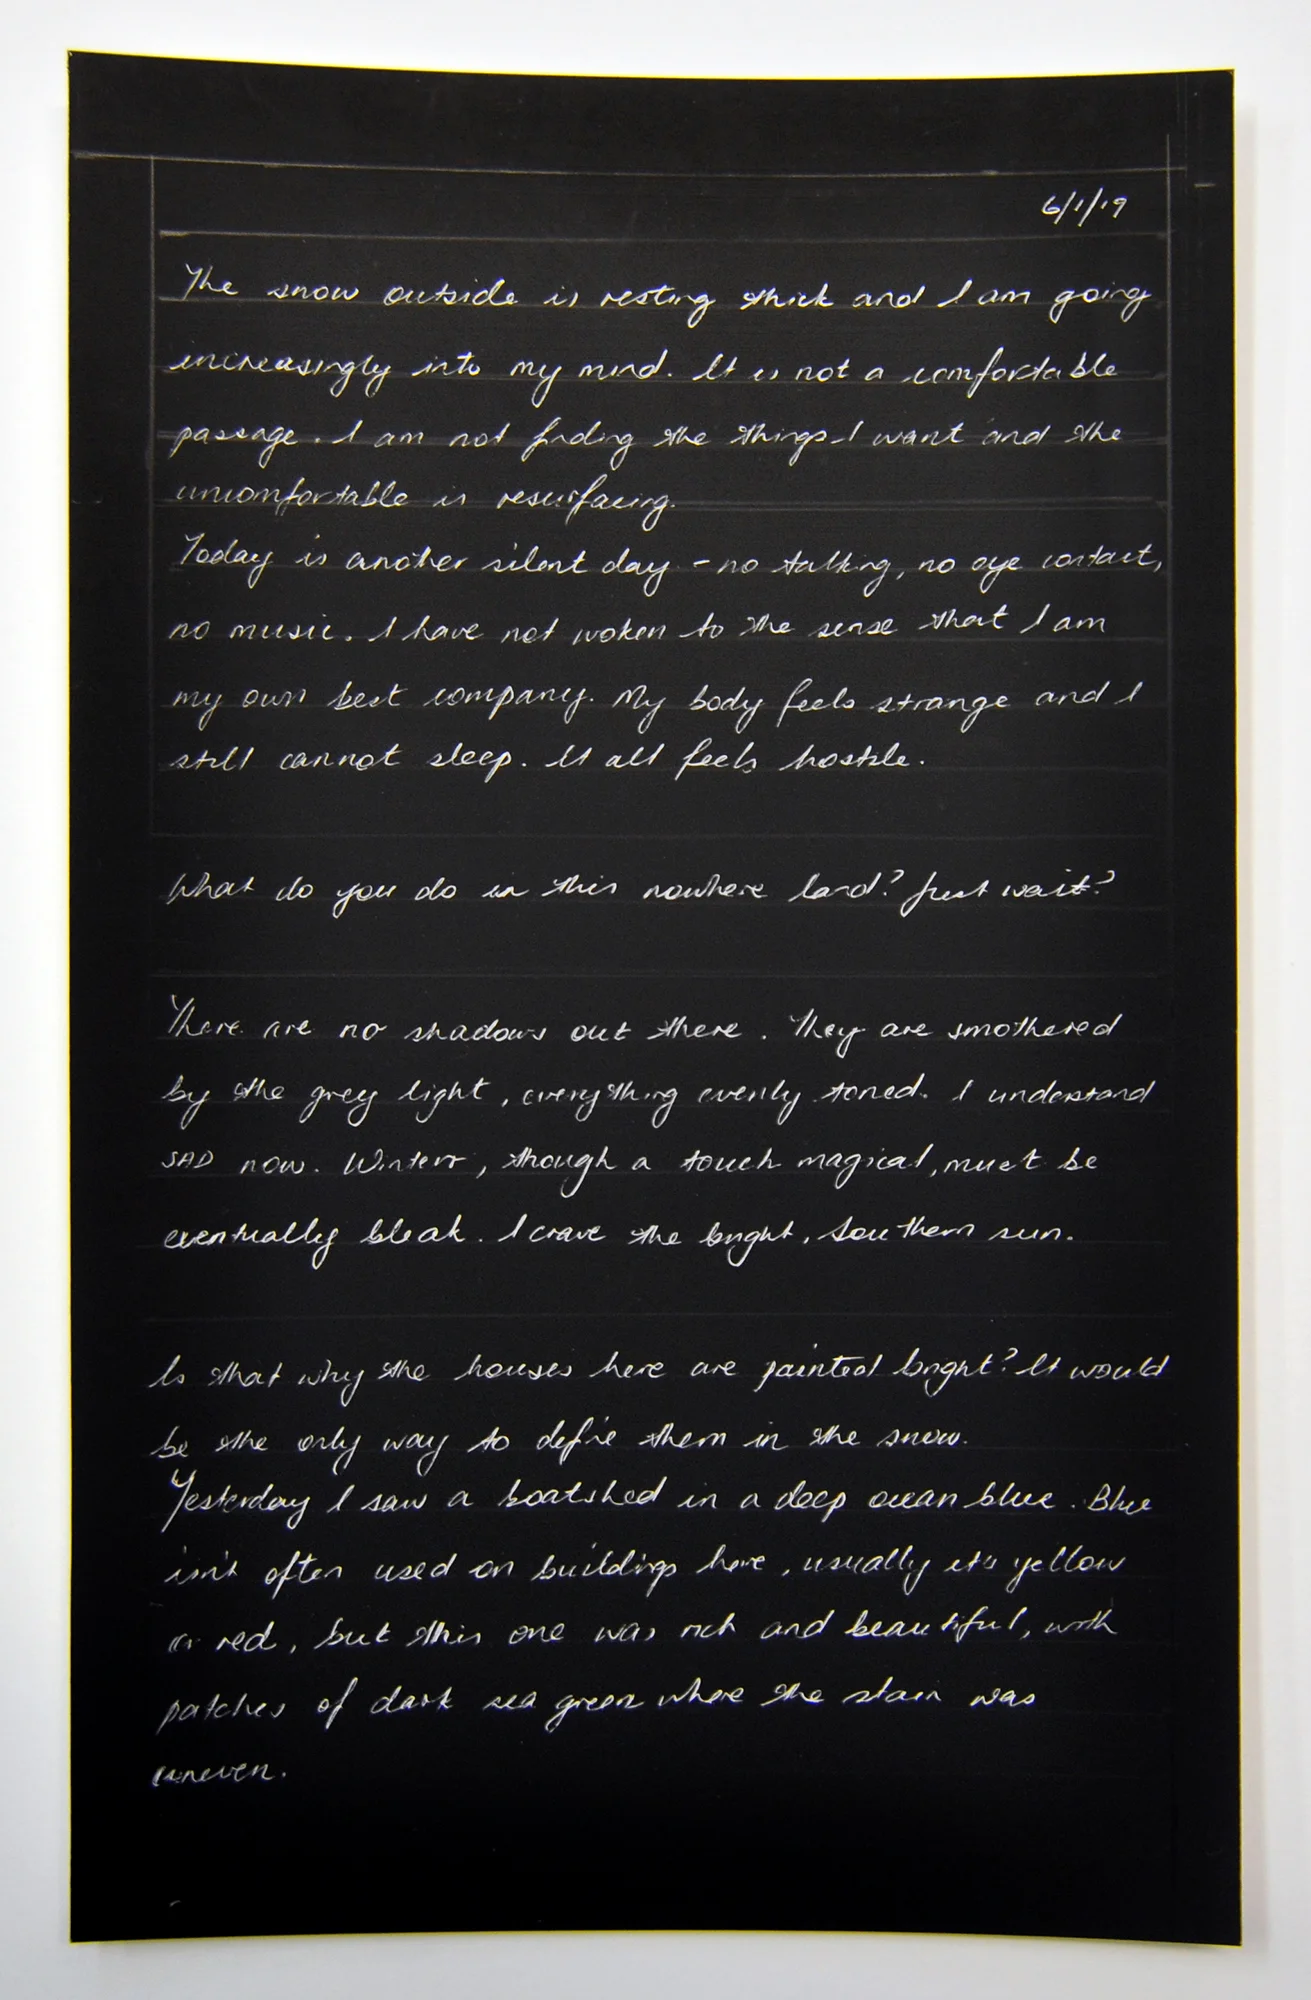 6/1/19
The snow outside is resting thick and I am going
increasingly into my mind. It is not a comfortable
passage. I am not finding the things I want and the
uncomfortable is resurfacing.
Today is another silent day - no talking, no eye contact,
no music. I have not woken to the sense that I am
my own best company. My body feels strange and I
still cannot sleep. It all feels hostile.
What do you do in this nowhere land? Just wait?
There are no shadows out there. They are smothered
by the grey light, everything evenly toned. I understand
SAD now. Winters, though a touch magical, must be
eventually bleak. I crave the bright, Southern sun.
Is that why the houses here are painted bright? It would
be the only way to define them in the snow.
Yesterday I saw a boatshed in a deep ocean blue. Blue
isn't often used on buildings here, usually its yellow
or red, but this one was rich and beautiful, with
patches of dark sea green where the stain was
uneven.